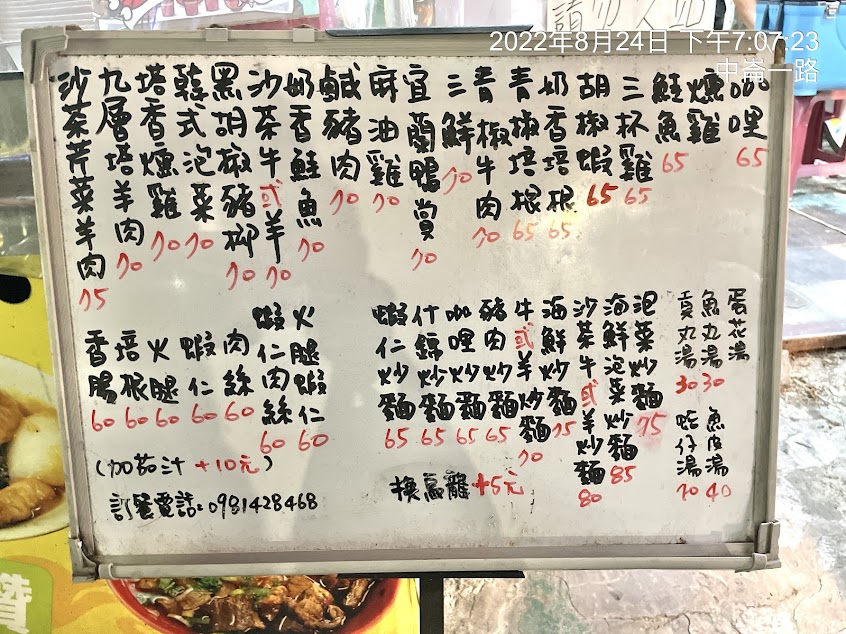 請勿
2022年8月24日 下午7:07:23
中崙一路
咖哩 65
燻雞
鮭魚 65
三杯雞 65
胡椒蝦 65
奶香培根 65
青椒培根 65
青椒牛肉 70
三鮮 70
宜蘭鴨賞 70
麻油雞 70
鹹豬肉 70
奶香鮭魚 70
沙茶牛或羊 70
黑胡椒豬柳 70
韓式泡菜 70
塔香燻雞 70
九層塔羊肉 70
沙茶芹菜羊肉 75
蛋花湯
魚丸湯 30
貢丸湯 30
魚皮湯 40
蛤仔湯 70
泡菜炒麵 75
海鮮泡菜炒麵 85
沙茶牛或羊炒麵 80
海鮮炒麵 75
牛或羊炒麵 70
豬肉炒麵 65
咖哩炒麵 65
什錦炒麵 65
蝦仁炒麵 65
換烏龍+5元
火腿蝦仁 60
蝦仁肉絲 60
肉絲 60
蝦仁 60
火腿 60
培根 60
香腸 60
(加茄汁+10元)
訂餐電話:0981428468
讚